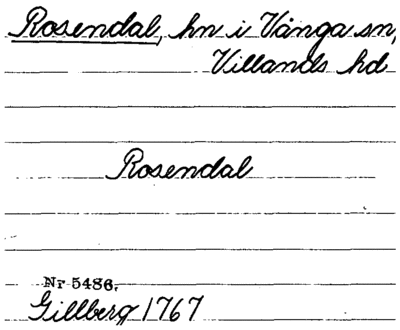 Rosendal, hn i Vånga sn,
Villands hd
Rosendal
Nr 5486.
Gillberg 1767